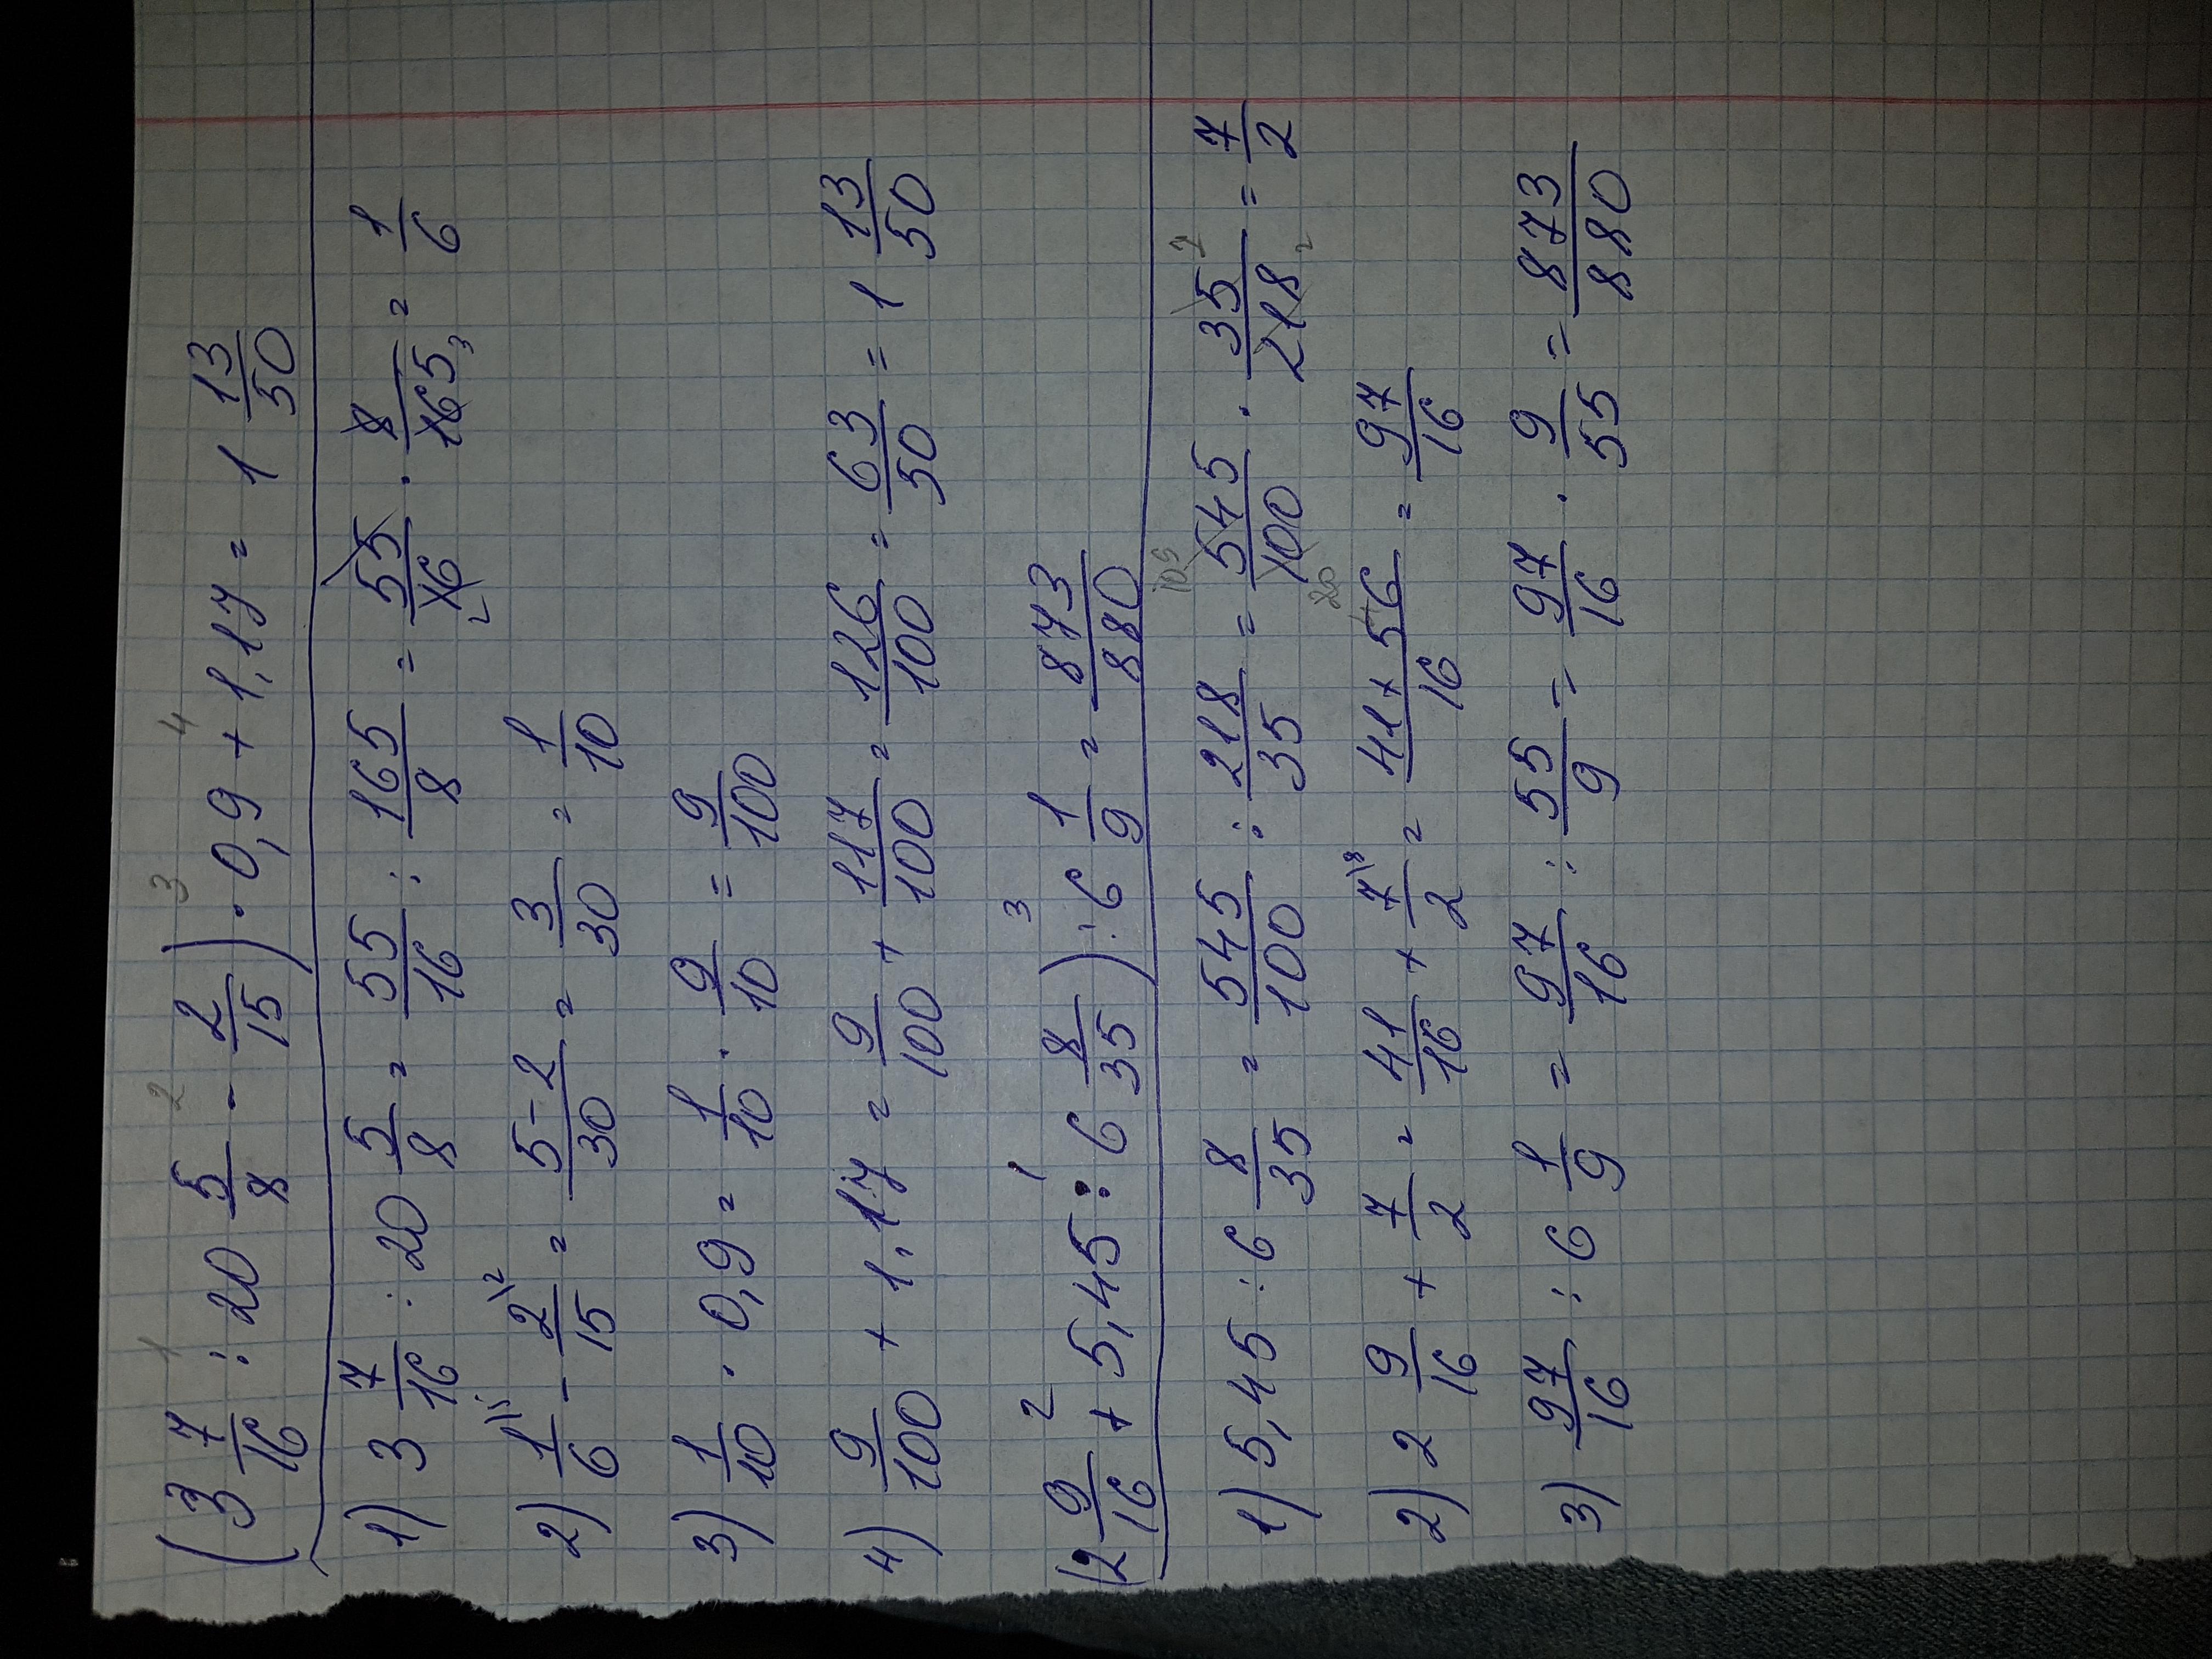 (3 7/16 : 20 5/8 - 2/15) · 0,9 + 1,17 = 1 13/50
1) 3 7/16 : 20 5/8 = 55/16 : 165/8 = 55/16 · 8/165 = 1/6
2) 1/6 - 2/15 = 5-2/30 = 3/30 = 1/10
3) 1/10 · 0,9 = 1/10 · 9/10 = 9/100
4) 9/100 + 1,17 = 9/100 + 117/100 = 126/100 = 63/50 = 1 13/50
(2 9/16 + 5,45 : 6 8/35) : 6 1/9 = 873/880
1) 5,45 : 6 8/35 = 545/100 : 218/35 = 545/100 · 35/218 = 7/2
2) 2 9/16 + 7/2 = 41/16 + 7/2 = 41+56/16 = 97/16
3) 97/16 : 6 1/9 = 97/16 : 55/9 = 97/16 · 9/55 = 873/880